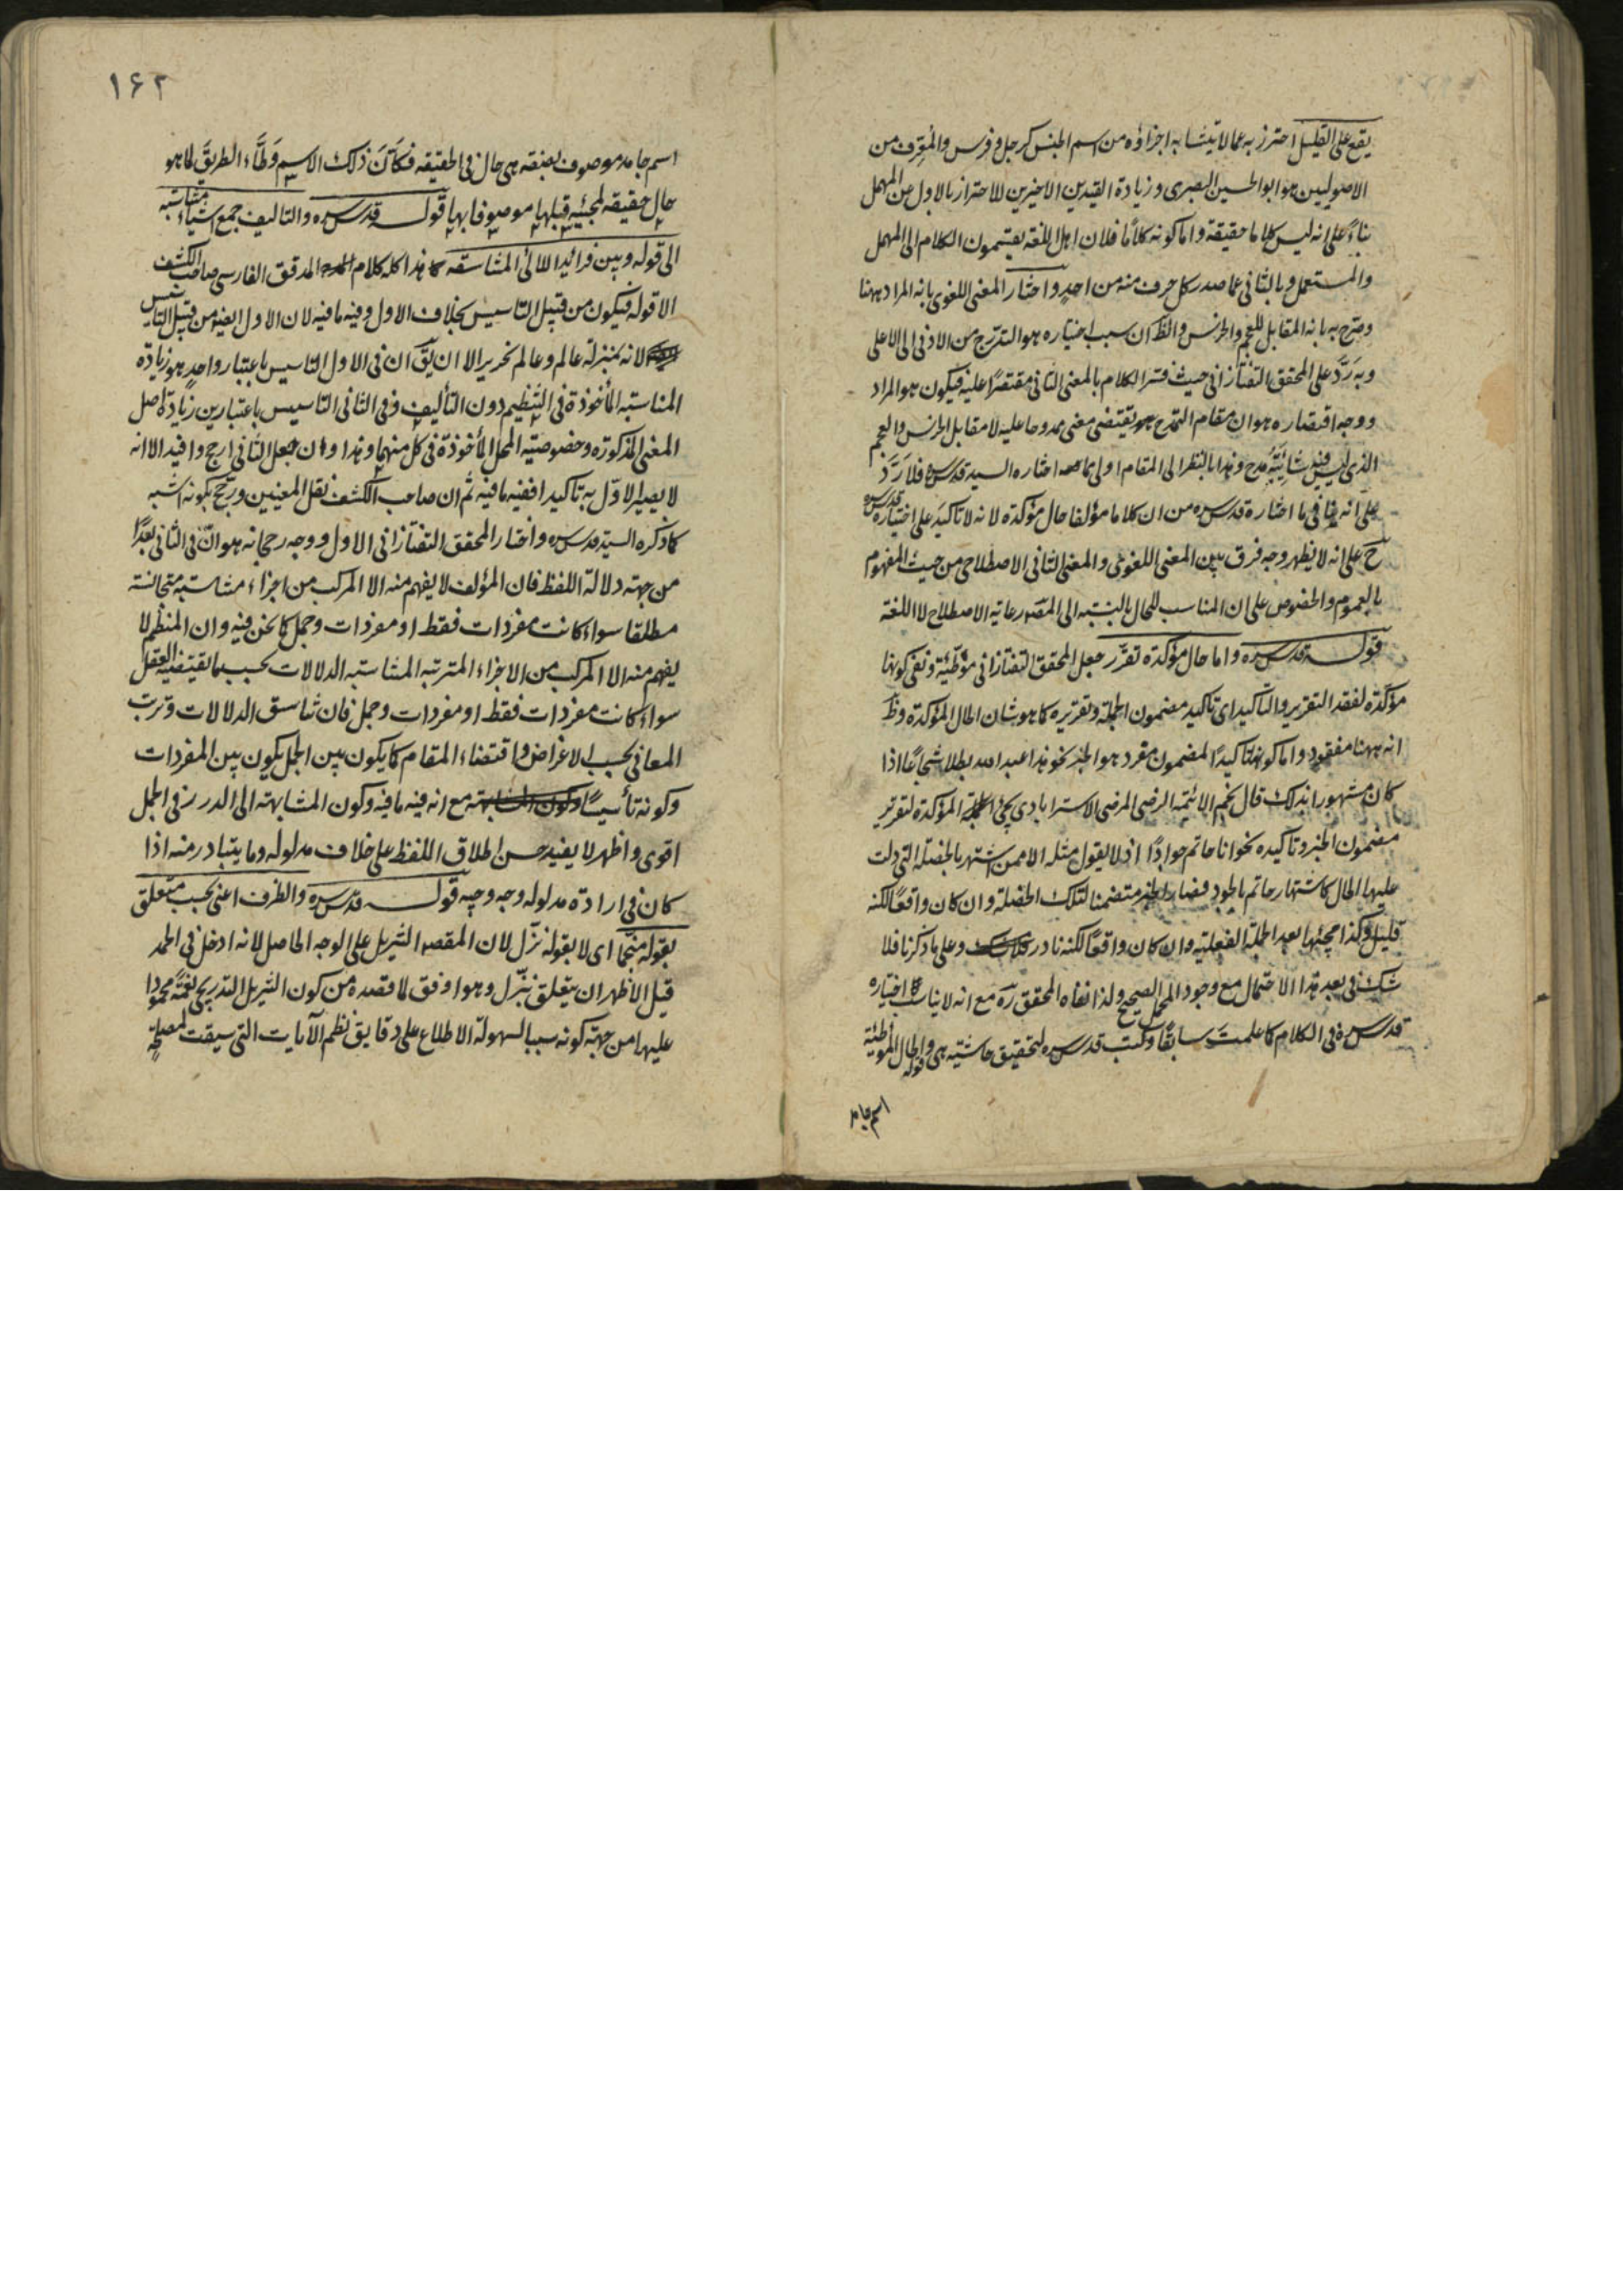 يقع على القليل احترز به عما لا يتشابه اجزاؤه من اسم الجنس كرجل وفرس والمعرف من
الاصوليين هو ابو الحسين البصرى وزيادة القيدين الاخيرين للاحتراز بالاول عن المهمل
بناءً على انه ليس كلاما حقيقة واما كونه كلامًا فلان اهل اللغة يقسمون الكلام الى المهمل
والمستعمل وبالثانى عما صدر كل حرف منه من احدٍ واختار المعنى اللغوى بانه المراد ههنا
وصرح به بانه المقابل للعجم والخرس والظ ان سبب اختياره هو التدرج من الادنى الى الاعلى
وبه رَدَّ على المحقق التفتازانى حيث فسّر الكلام بالمعنى الثانى مقتصرًا عليه فيكون هو المراد
ووجه اقتصاره هو ان مقام التمدح يقتضى معنى ممدوحا عليه لا مقابل الخرس والعجم
الذى ليس فيه شائبة مدح وهذا بالنظر الى المقام اولى مما اختاره السيد قدس سره فلا رَدَّ
على انه ينافى ما اختاره قدس سره من ان كلاما مؤلفا حال مؤكدة لانه لا تاكيد على اختياره قدس سره
ح على انه لا يظهر وجه فرق بين المعنى اللغوى والمعنى الثانى الاصطلاحى من حيث المفهوم
بالعموم والخصوص على ان المناسب للحال بالنسبة الى المقصد رعاية الاصطلاح لا اللغة
قوله قدس سره واما حال مؤكدة تقرّر جعل المحقق التفتازانى موطّئة ونفى كونها
مؤكدة لفقد التقرير والتأكيد اى تاكيد مضمون الجملة وتقريره كما هو شان الحال المؤكدة وظ
انه ههنا مفقود واما كونها تاكيدًا لمضمون مفرد هو الخبر نحو هذا عبد الله بطلا شجاعًا اذا
كان مشهورا بذلك قال نجم الائمة الرضى المرضى الاسترابادى يجئ المؤكدة لتقرير
مضمون الخبر وتاكيده نحو انا حاتم جوادًا اذ لا يقول مثله الا من اشتهر بالخصلة التى دلت
عليها الحال كاشتهار حاتم بالجود فصار الخبر متضمنا لتلك الخصلة وان كان واقعًا لكنه
قليل وكذا مجيئها بعد الجملة الفعلية وان كان واقعًا لكنه نادر وعلى ما ذكرنا فلا
شك فى بعد هذا الاحتمال مع وجود المحمل الصحيح ولذا نفاه المحقق ره مع انه لا يناسب اختياره
قدس سره فى الكلام كما علمت سابقًا وكتب قدس سره لتحقيق حاشية هى قوله والحال الموطئة
اسم جامد
١۶٢
اسم جامد موصوف بصفة هى حال فى الحقيقة فكأنّ ذلك الاسم وَطَّاء الطريقَ لما هو
حال حقيقة لمجيئه قبلها موصوفا بها قوله قدس سره والتاليف جمع اشياء متناسبة
الى قوله وبين فرائد اللآلئ المتناسقة هذا كله كلام المدقق الفارسى صاحب الكشف
الا قوله فيكون من قبيل التاسيس بخلاف الاول وفيه ما فيه لان الاول ايضا من قبيل التاسيس
لانه بمنزلة عالم وعالم نحرير الا ان يقّ ان فى الاول التاسيس باعتبار واحدٍ هو زيادة
المناسبة المأخوذة فى التنظيم دون التأليف وفى الثانى التاسيس باعتبارين زيادة اصل
المعنى المذكورة وخصوصية المحل المأخوذة فى كل منهما وهذا وان جعل الثانى ارجح وافيد الا انه
لا يصير الاوّل به تاكيدا ففيه ما فيه ثم ان صاحب الكشف نقل المعنيين ورجّح بكونه اشبه
كما ذكره السيد قدس سره واختار المحقق التفتازانى الاول ووجه رجحانه هو انّ فى الثانى بعدًا
من جهة دلالة اللفظ فان المؤلف لا يفهم منه الا المركب من اجزاء متناسبة متجانسة
مطلقا سواء كانت مفردات فقط او مفردات وجمل كما نحن فيه وان المنظم لا
يفهم منه الا المركب من الاجزاء المترتبة المتناسبة الدلالات بحسب ما يقتضيه العقل
سواء كانت مفردات فقط او مفردات وجمل فان تناسق الدلالات وترتب
المعانى بحسب الاغراض واقتضاء المقام كما يكون بين الجمل يكون بين المفردات
وكونه تأسيسًا مع انه فيه ما فيه وكون المشابهة الى الدرر فى الجمل
اقوى واظهر لا يفيد حسن اطلاق اللفظ على خلاف مدلوله وما يتبادر منه اذا
كان فى ارادة مدلوله وجه وجيه قوله قدس سره والظرف اعنى بحسب متعلق
بقوله منجّما اى لا بقوله نزّل لان المقصد التنزيل على الوجه الحاصل لانه ادخل فى الحمد
قيل الاظهر ان يتعلق بنزّل وهو اوفق لما قصده من كون التنزيل التدريجى نعمةً محمودا
عليها من جهة كونه سببا لسهولة الاطلاع على دقايق نظم الآيات التى سيقت لمصلحة